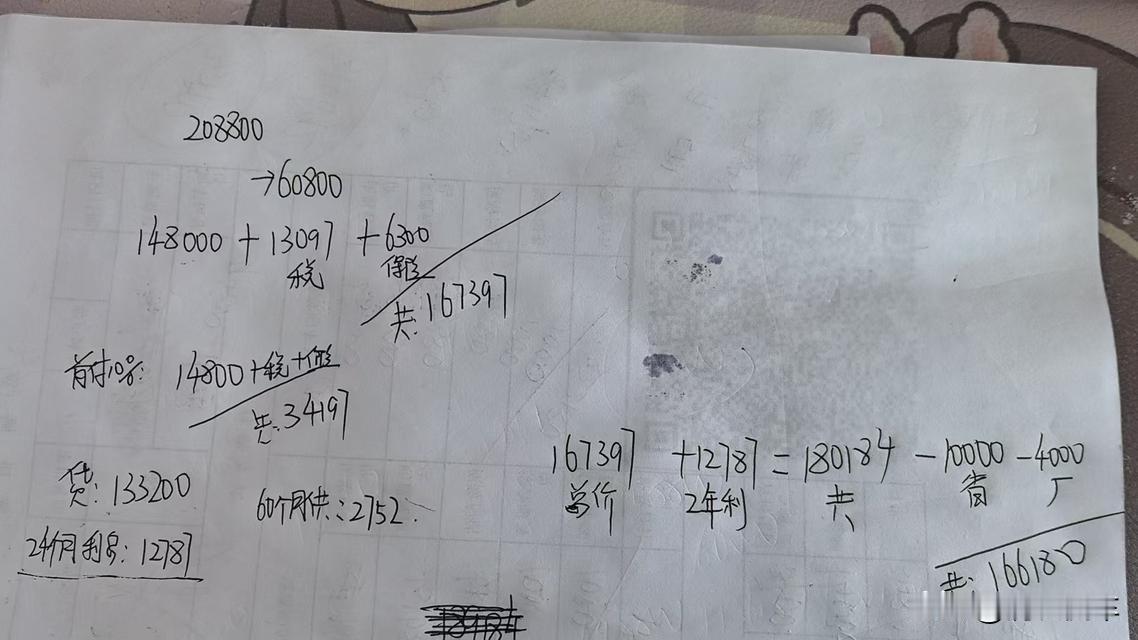 208800
→60800
148000 + 13097 + 6300
税 保险
共: 167397
首付10%: 14800 + 税 + 保险
共: 34197
贷: 133200
60个月供: 2752.
24个月利息: 12787
167397 + 12787 = 180184 - 10000 - 4000
总价 2年利 共 省 厂
共: 166180